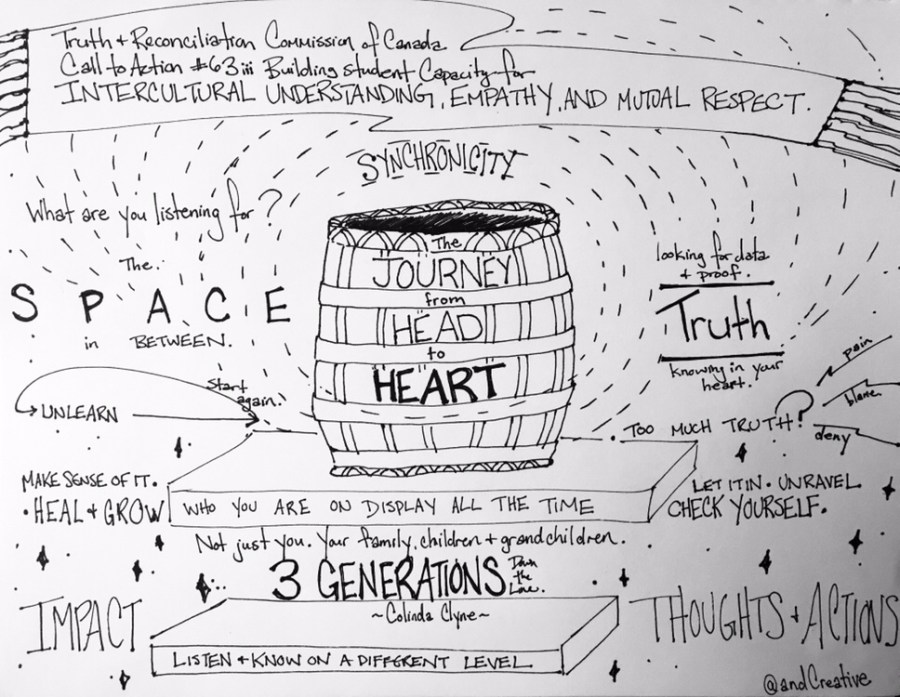 Truth + Reconciliation Commission of Canada
Call to Action #63 iii Building student Capacity for
INTERCULTURAL UNDERSTANDING, EMPATHY, AND MUTUAL RESPECT.
SYNCHRONICITY
What are you listening for?
The
SPACE
in BETWEEN.
The
JOURNEY
from
HEAD
to
HEART
looking for data
+ proof.
Truth
knowing in your
heart.
Start
again.
UNLEARN
TOO MUCH TRUTH?
pain
blame
deny
MAKE SENSE OF IT.
• HEAL + GROW
LET IT IN • UNRAVEL
CHECK YOURSELF.
WHO YOU ARE ON DISPLAY ALL THE TIME
Not just you. Your family, children + grandchildren.
3 GENERATIONS
Down
the
Line.
~Colinda Clyne~
IMPACT
THOUGHTS + ACTIONS
LISTEN + KNOW ON A DIFFERENT LEVEL
@andCreative